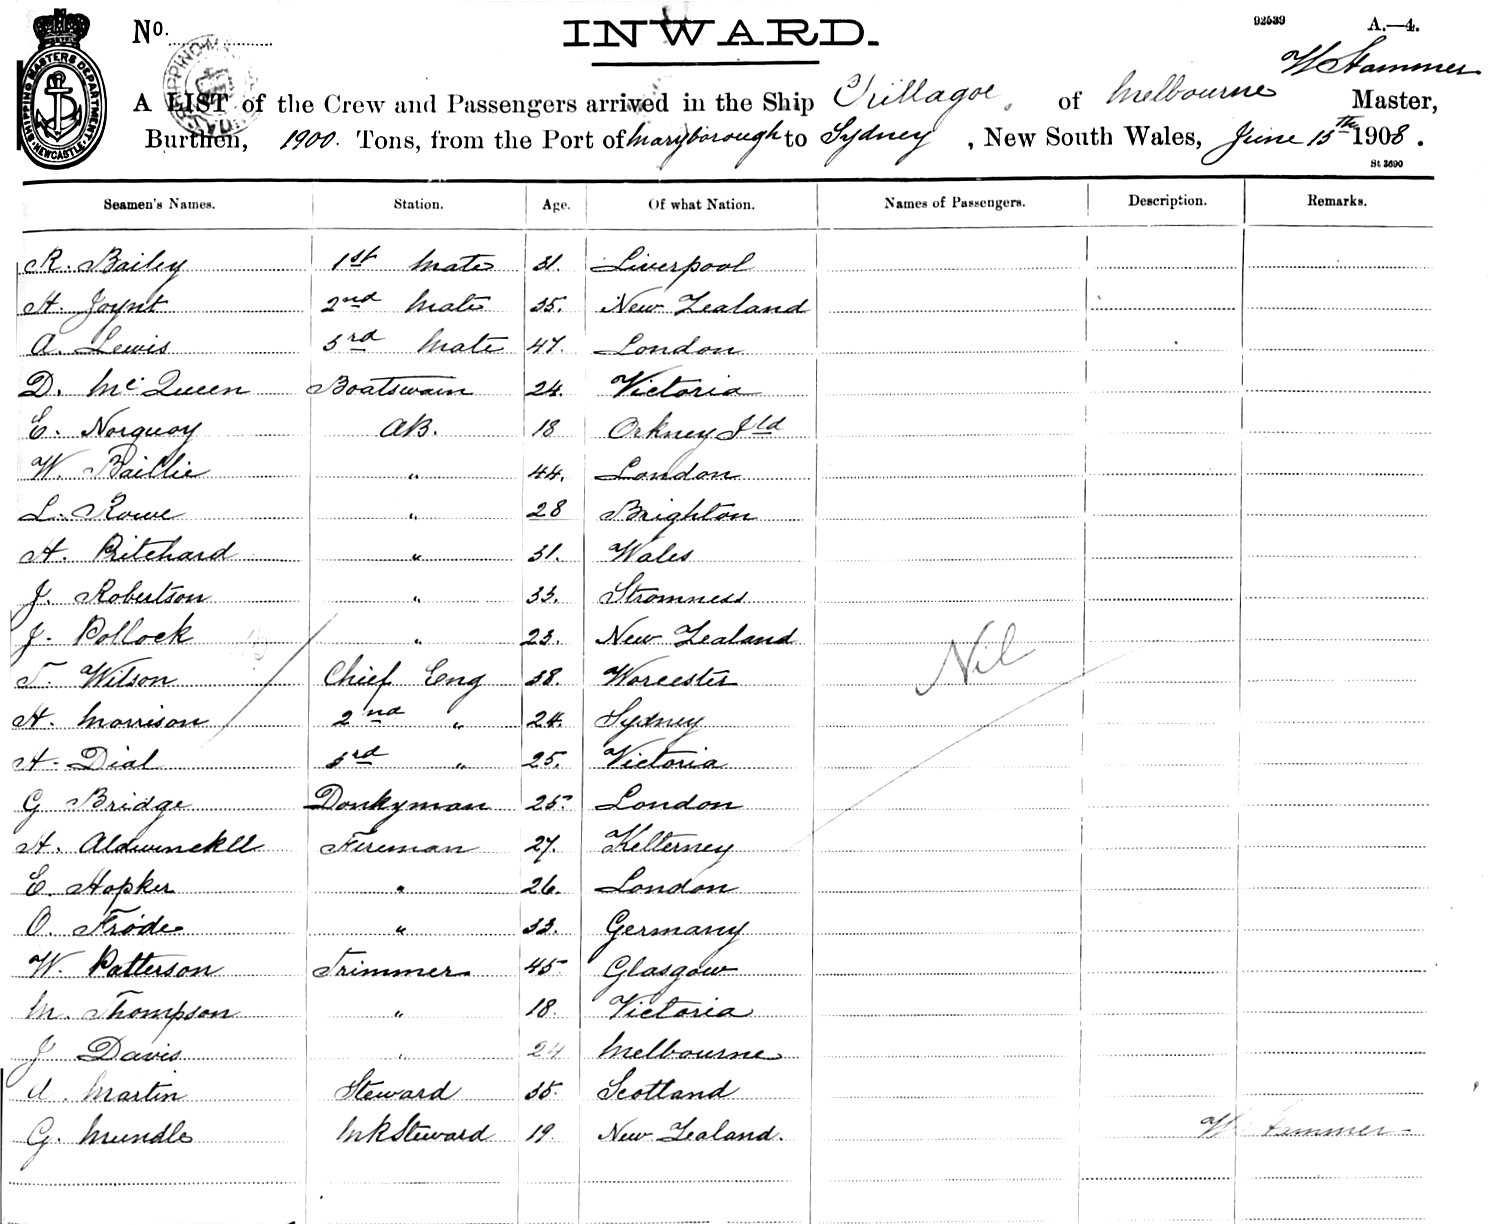 No. INWARD. 92539 A.—4.
W Hammer
A LIST of the Crew and Passengers arrived in the Ship Chillagoe, of Melbourne Master,
Burthen, 1900. Tons, from the Port of Maryborough to Sydney, New South Wales, June 15th 1908.
SHIPPING MASTERS DEPARTMENT NEWCASTLE
St 3690
Seamen's Names. Station. Age. Of what Nation. Names of Passengers. Description. Remarks.
R. Bailey 1st Mate 31. Liverpool
H. Joynt 2nd Mate 35. New Zealand
A. Lewis 3rd Mate 47. London
D. McQueen Boatswain 24. Victoria
E. Norquoy AB. 18 Orkney Ild
W. Baillie " 44. London
L. Rowe " 28 Brighton
H. Pritchard " 31. Wales
J. Robertson " 33. Stromness
J. Pollock " 23. New Zealand
Nil
T. Wilson Chief Eng 38. Worcester
H. Morrison 2nd " 24. Sydney
H. Dial 3rd " 25. Victoria
G Bridge Donkyman 25. London
H. Aldwinckll Fireman 27. Kelterney
E. Hopker " 26. London
O. Frode " 33. Germany
W. Patterson Trimmer 45 Glasgow
M. Thompson " 18. Victoria
J Davis " 24 Melbourne
Martin Steward 35. Scotland
G. Mundle MRSteward 19. New Zealand.
W Hammer